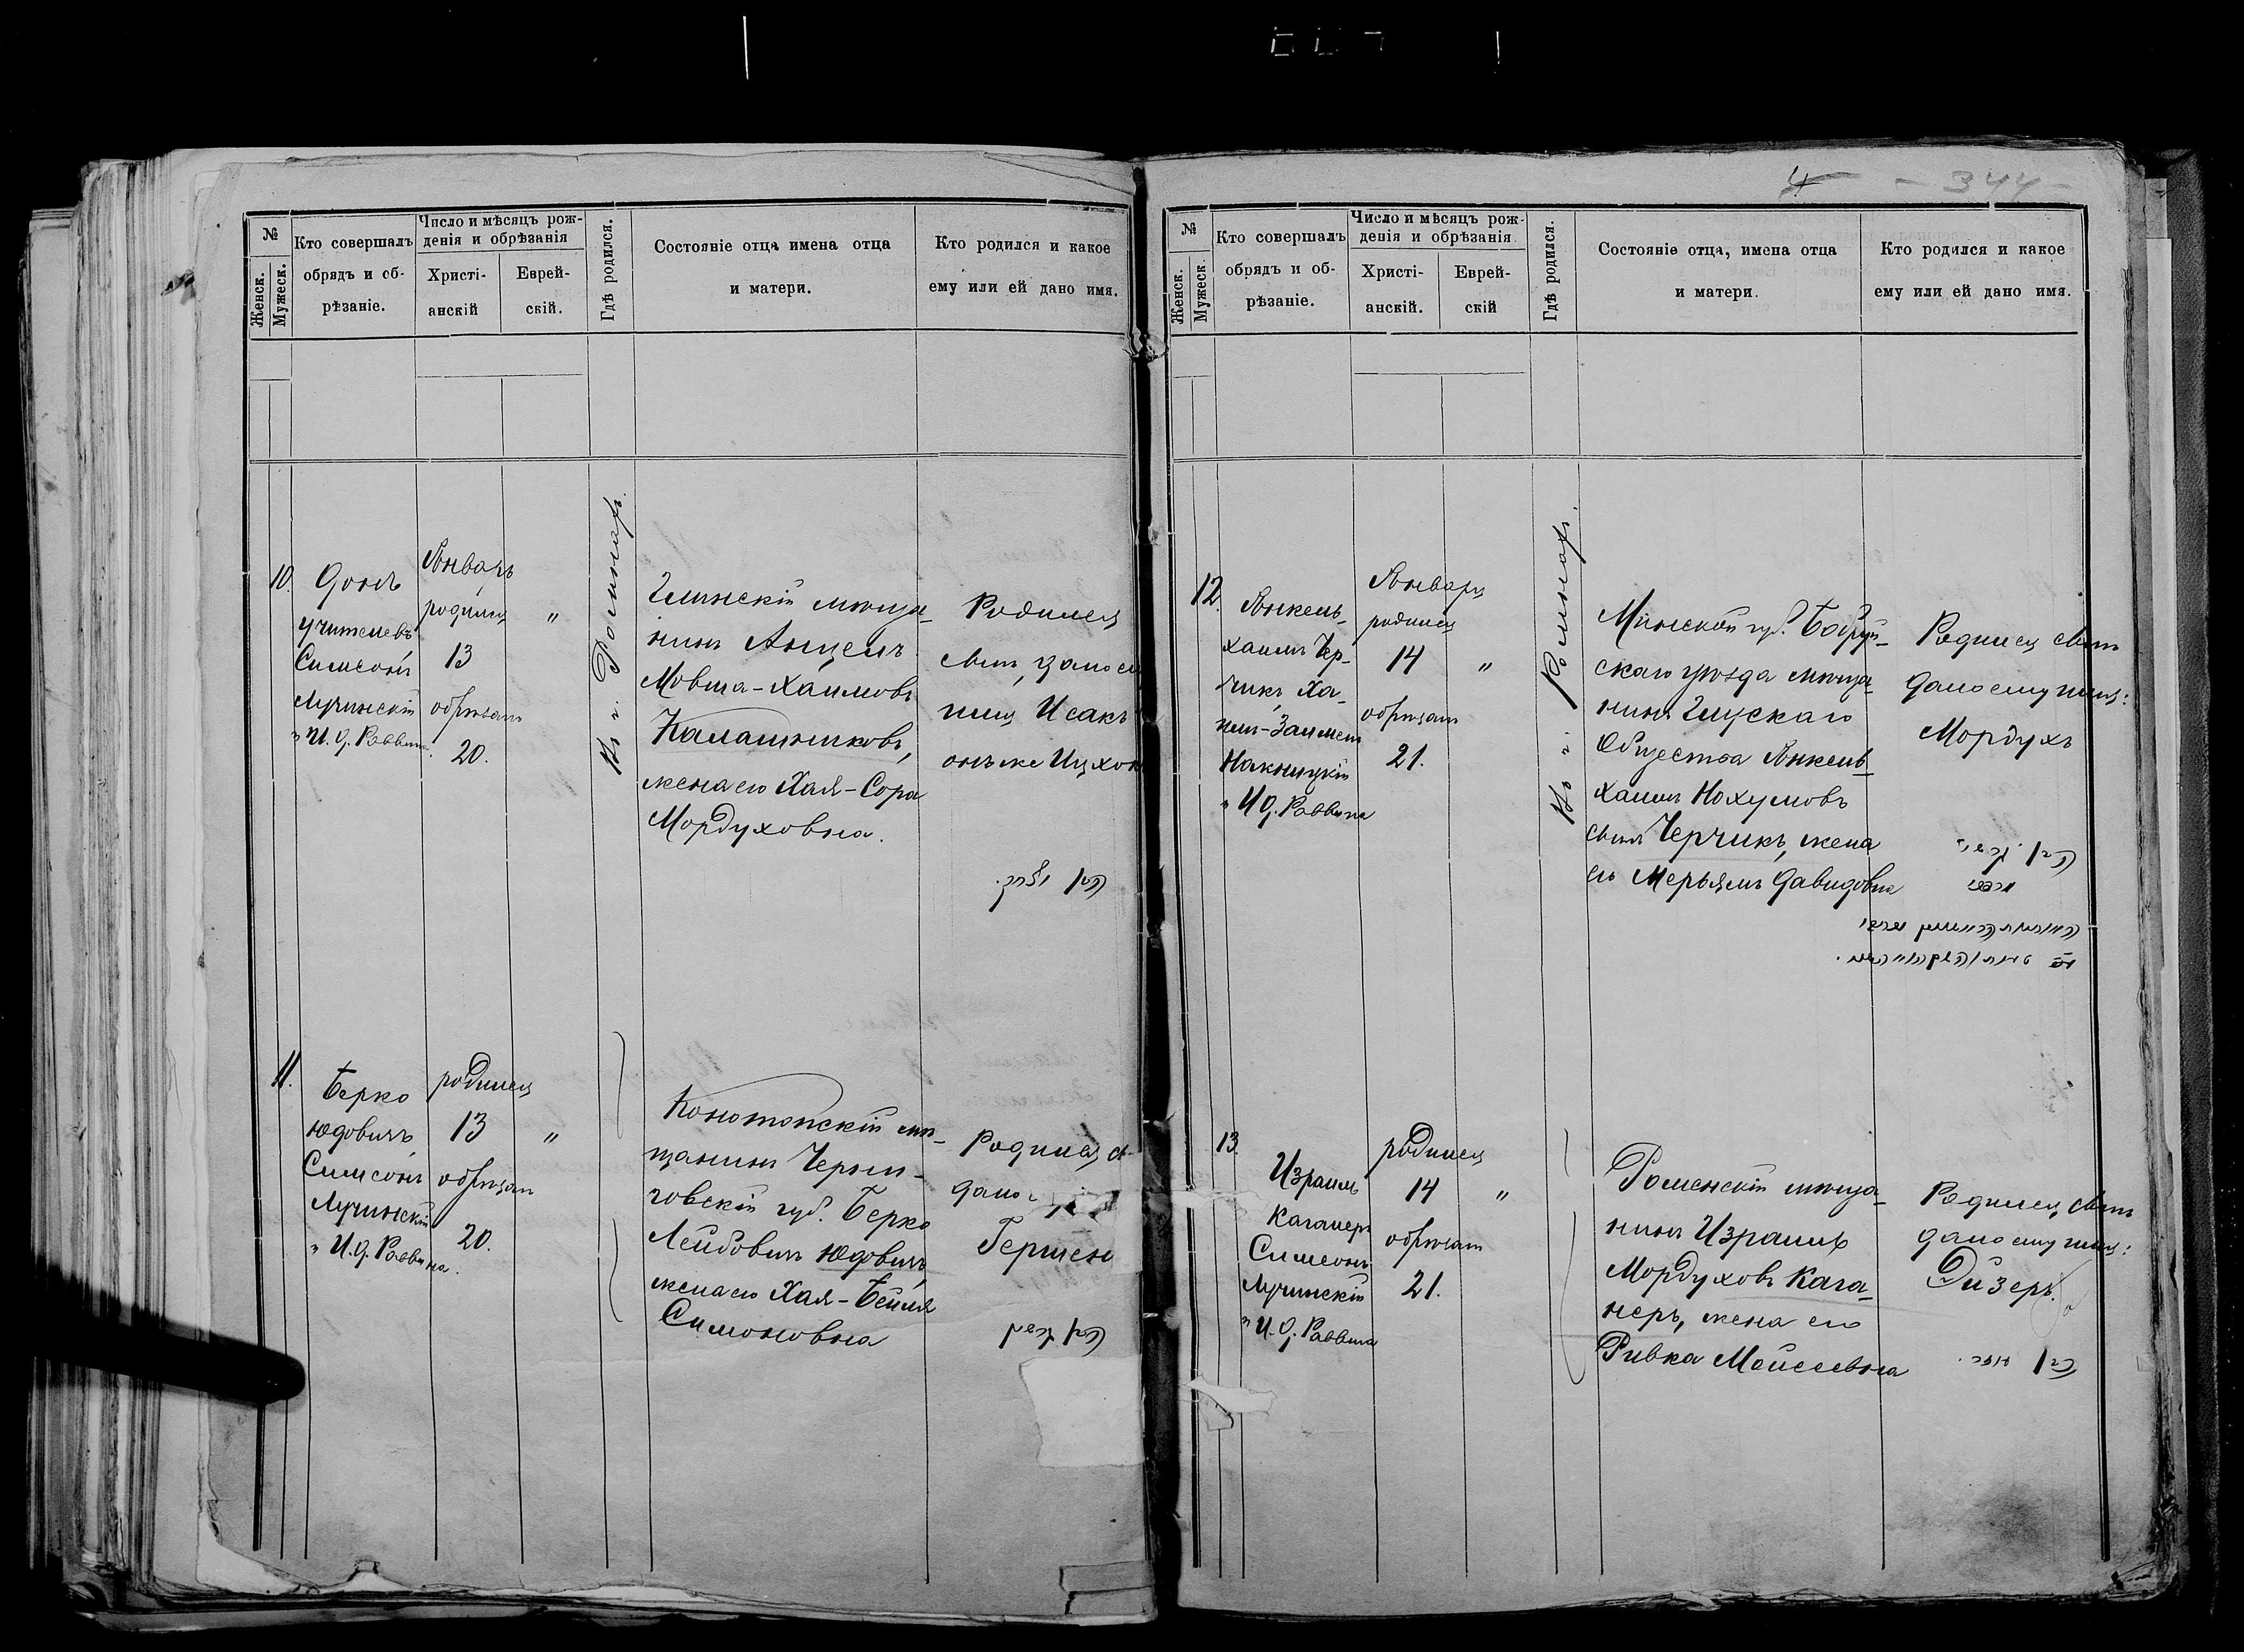 4 - 344 -
№
Женск.
Мужеск.
Кто совершалъ
обрядъ и об-
рѣзаніе.
Число и мѣсяцъ рож-
денія и обрѣзанія
Христі-
анскій
Еврей-
скій.
Гдѣ родился.
Состояніе отца, имена отца
и матери.
Кто родился и какое
ему или ей дано имя.
10.
Донъ
учителевъ
Симсонъ
Лучинскій
" И. д. Раввина.
Январь
родился
13
обрѣзанъ
20.
"
Въ г. Ромнахъ.
Глинскій мѣща-
нинъ Анцелъ
Мовша-Хаимовъ
Калашниковъ,
жена его Хая-Сора
Мордуховна.
Родился
сынъ, дано ем
имя Исакъ
онъ же Ицхок
11.
Берко
Юдовичъ
Симсонъ
Лучинскій
" И. д. Раввина.
родился
13
обрѣзанъ
20.
"
Конотопскій мѣ-
щанинъ Черни-
говскій губ. Берко
Лейбовичъ Юдовичъ,
жена его Хая-Бейля
Симоновна
Родился с
дано
Гершен
№
Женск.
Мужеск.
Кто совершалъ
обрядъ и об-
рѣзаніе.
Число и мѣсяцъ рож-
денія и обрѣзанія.
Христі-
анскій.
Еврей-
скій
Гдѣ родился.
Состояніе отца, имена отца
и матери.
Кто родился и какое
ему или ей дано имя.
12.
Янкель-
хаимъ Чер-
чикъ, Ха-
имъ-Залмен
" И д. Раввина
Январь
родился
14
обрѣзанъ
21.
"
Въ г. Ромнахъ.
Минской губ. Бобруй-
скаго уѣзда мѣща-
нинъ Глускаго
Общества Янкель-
хаимъ Нохумовъ
сынъ Черчикъ, жена
его Мерьямъ Давидовна
Родился сынъ
дано ему имя:
Мордухъ
13.
Израиль
Каганеръ
Симсонъ
Лучинскій
" И. д. Раввина
родился
14
обрѣзанъ
21.
"
Роменскій мѣща-
нинъ Израиль
Мордуховъ Кага-
неръ, жена его
Ривка Моисеевна
Родился сынъ
дано ему имя:
Эйзеръ.